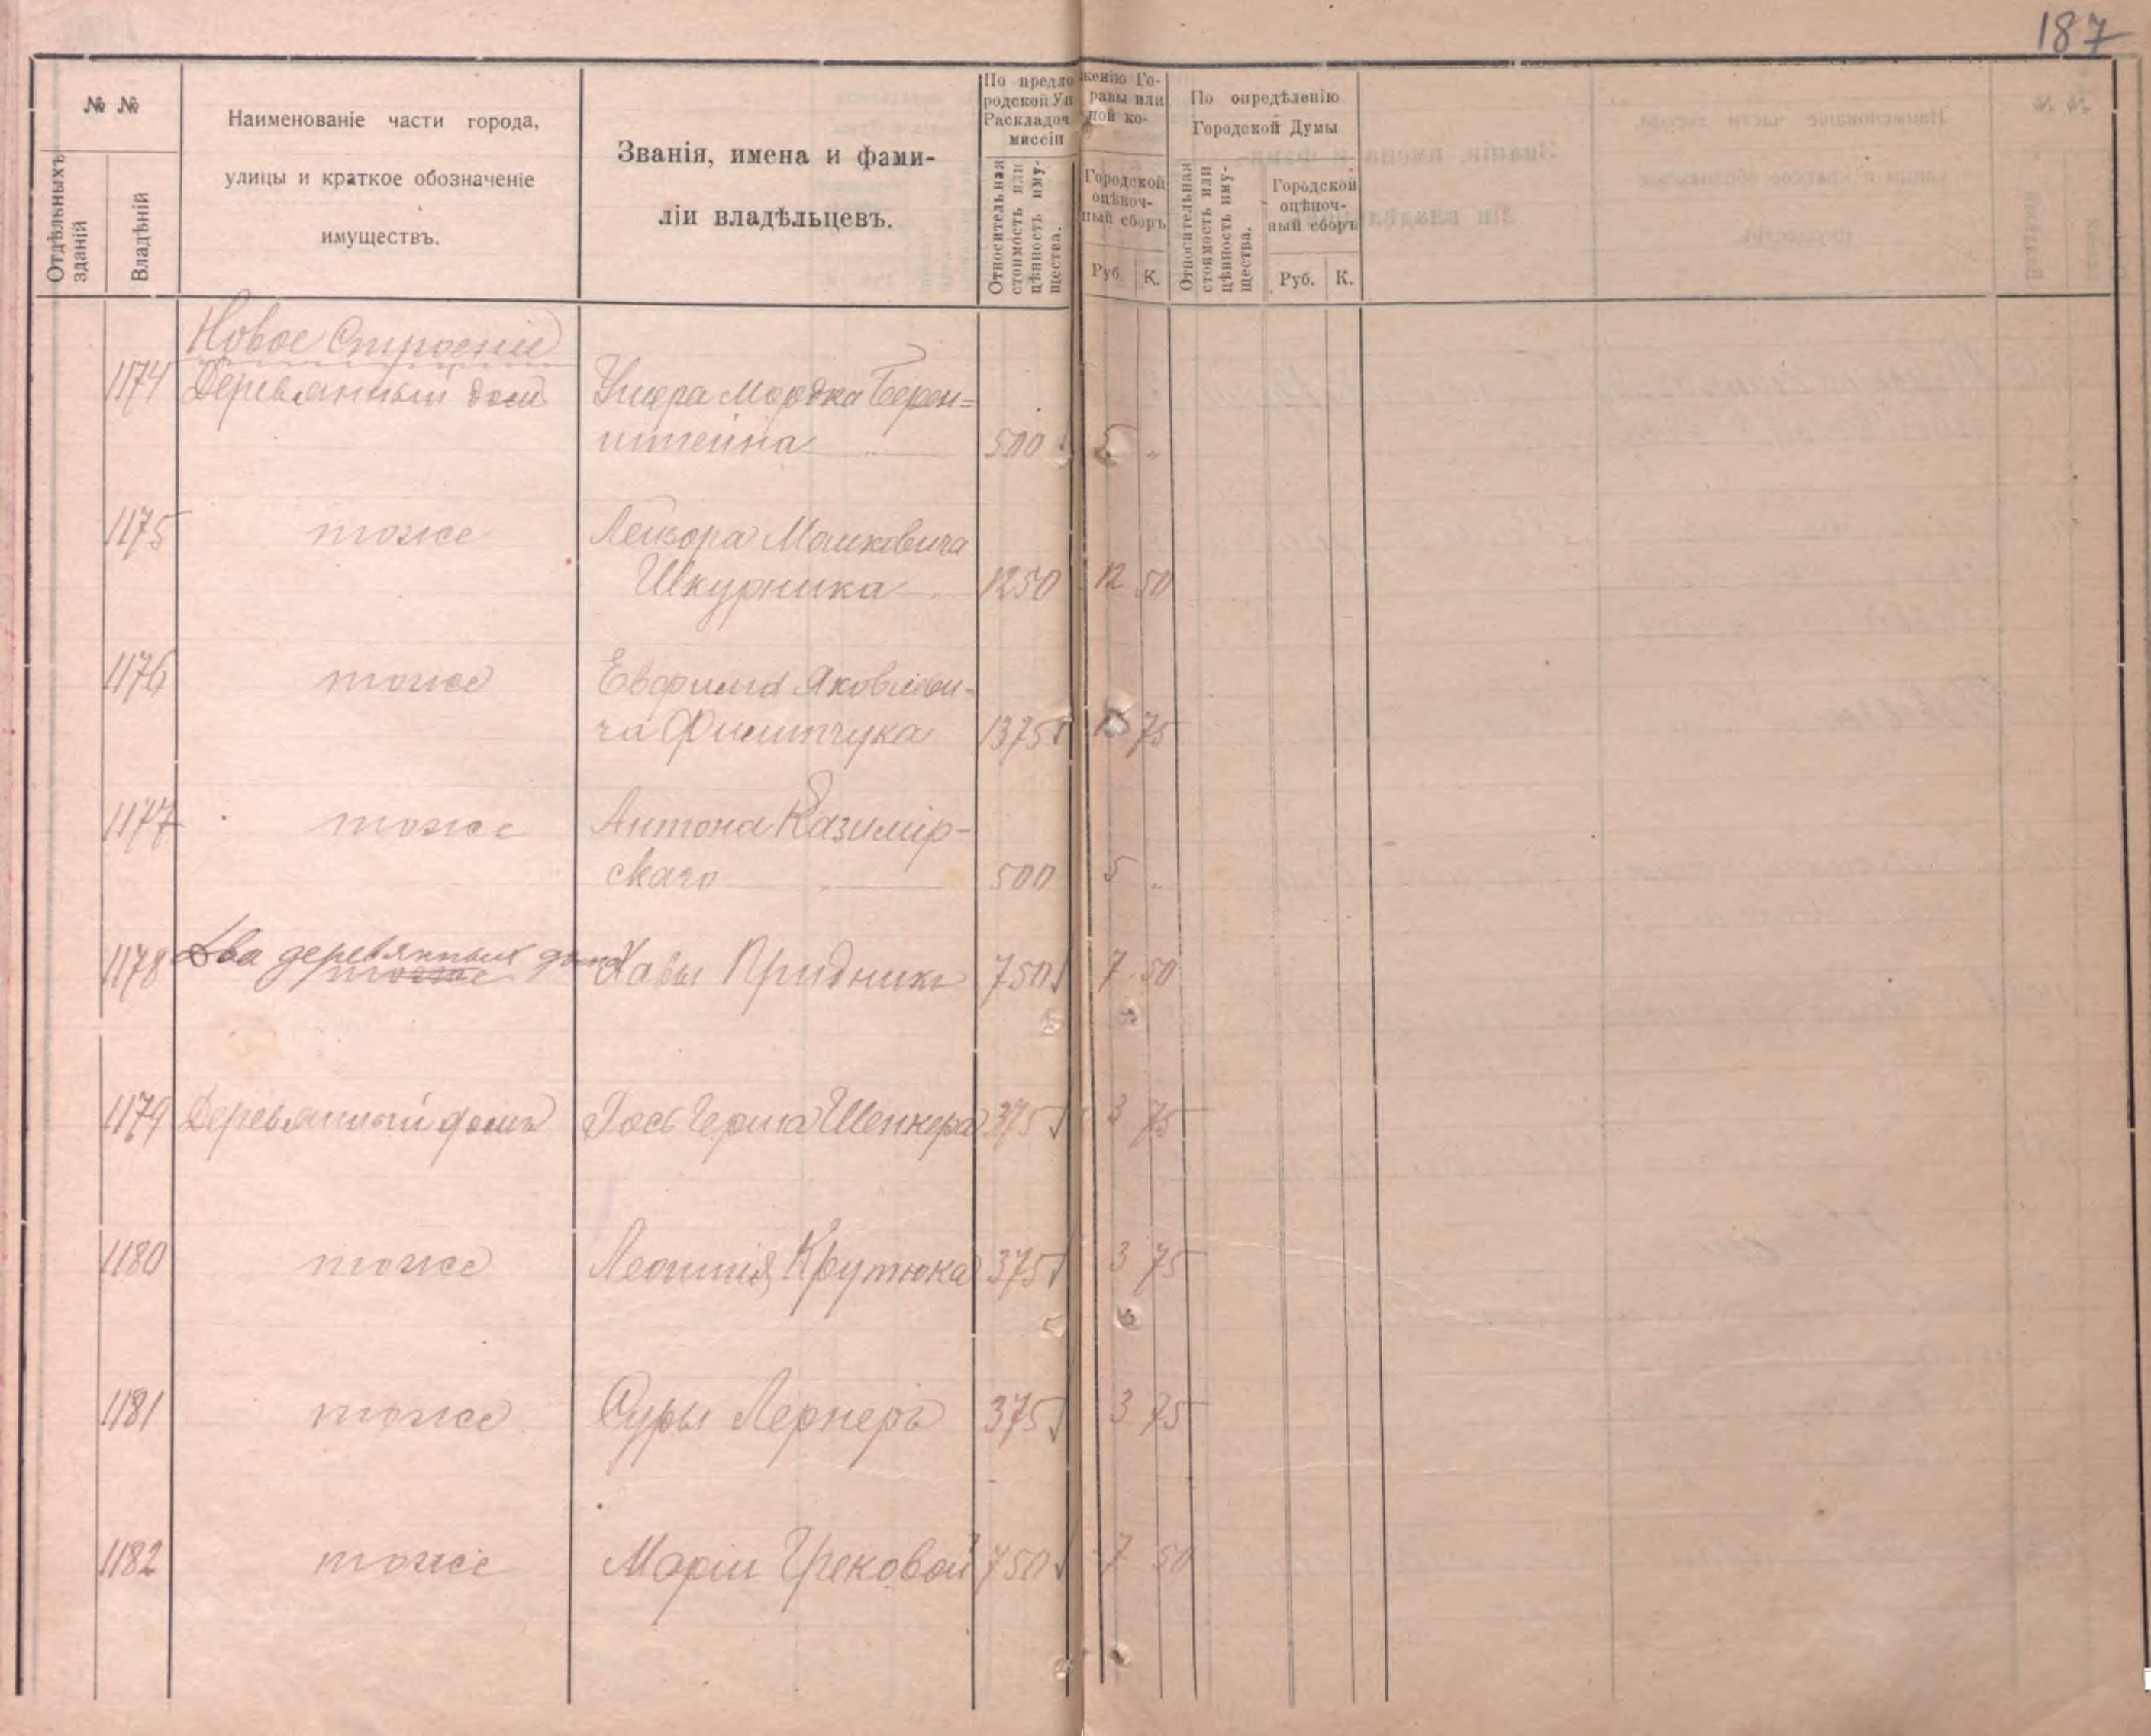 187
№ №
Отдѣльныхъ зданій
Владѣній
Наименованіе части города,
улицы и краткое обозначеніе
имуществъ.
Званія, имена и фами-
ліи владѣльцевъ.
По предло женію Го-
родской Уп равы или
Раскладоч ной ко-
миссіи
Относительная
стоимость или
цѣнность иму-
щества.
Городской
оцѣноч-
ный сборъ
Руб. К.
По опредѣленію
Городской Думы
Относительная
стоимость или
цѣнность иму-
щества.
Городской
оцѣноч-
ный сборъ
Руб. К.
Новое Строеніе
1174 Деревянный домъ Ушера Мордка Берен=
штейна 500 5 "
1175 тоже Лейзора Мошковича
Шкурника 1250 12 50
1176 тоже Евфима Яковлеви-
ча 1375 75
1177 тоже Антона Казимір-
скаго 500 5 "
1178 Два деревянныхъ дома тоже Хавы Придникъ 750 7 50
1179 Деревянный домъ Герша Шенкера 375 3 75
1180 тоже Леонтія Крутюка 375 3 75
1181 тоже Суры Лернеръ 375 3 75
1182 тоже Маріи Грековой 750 7 50